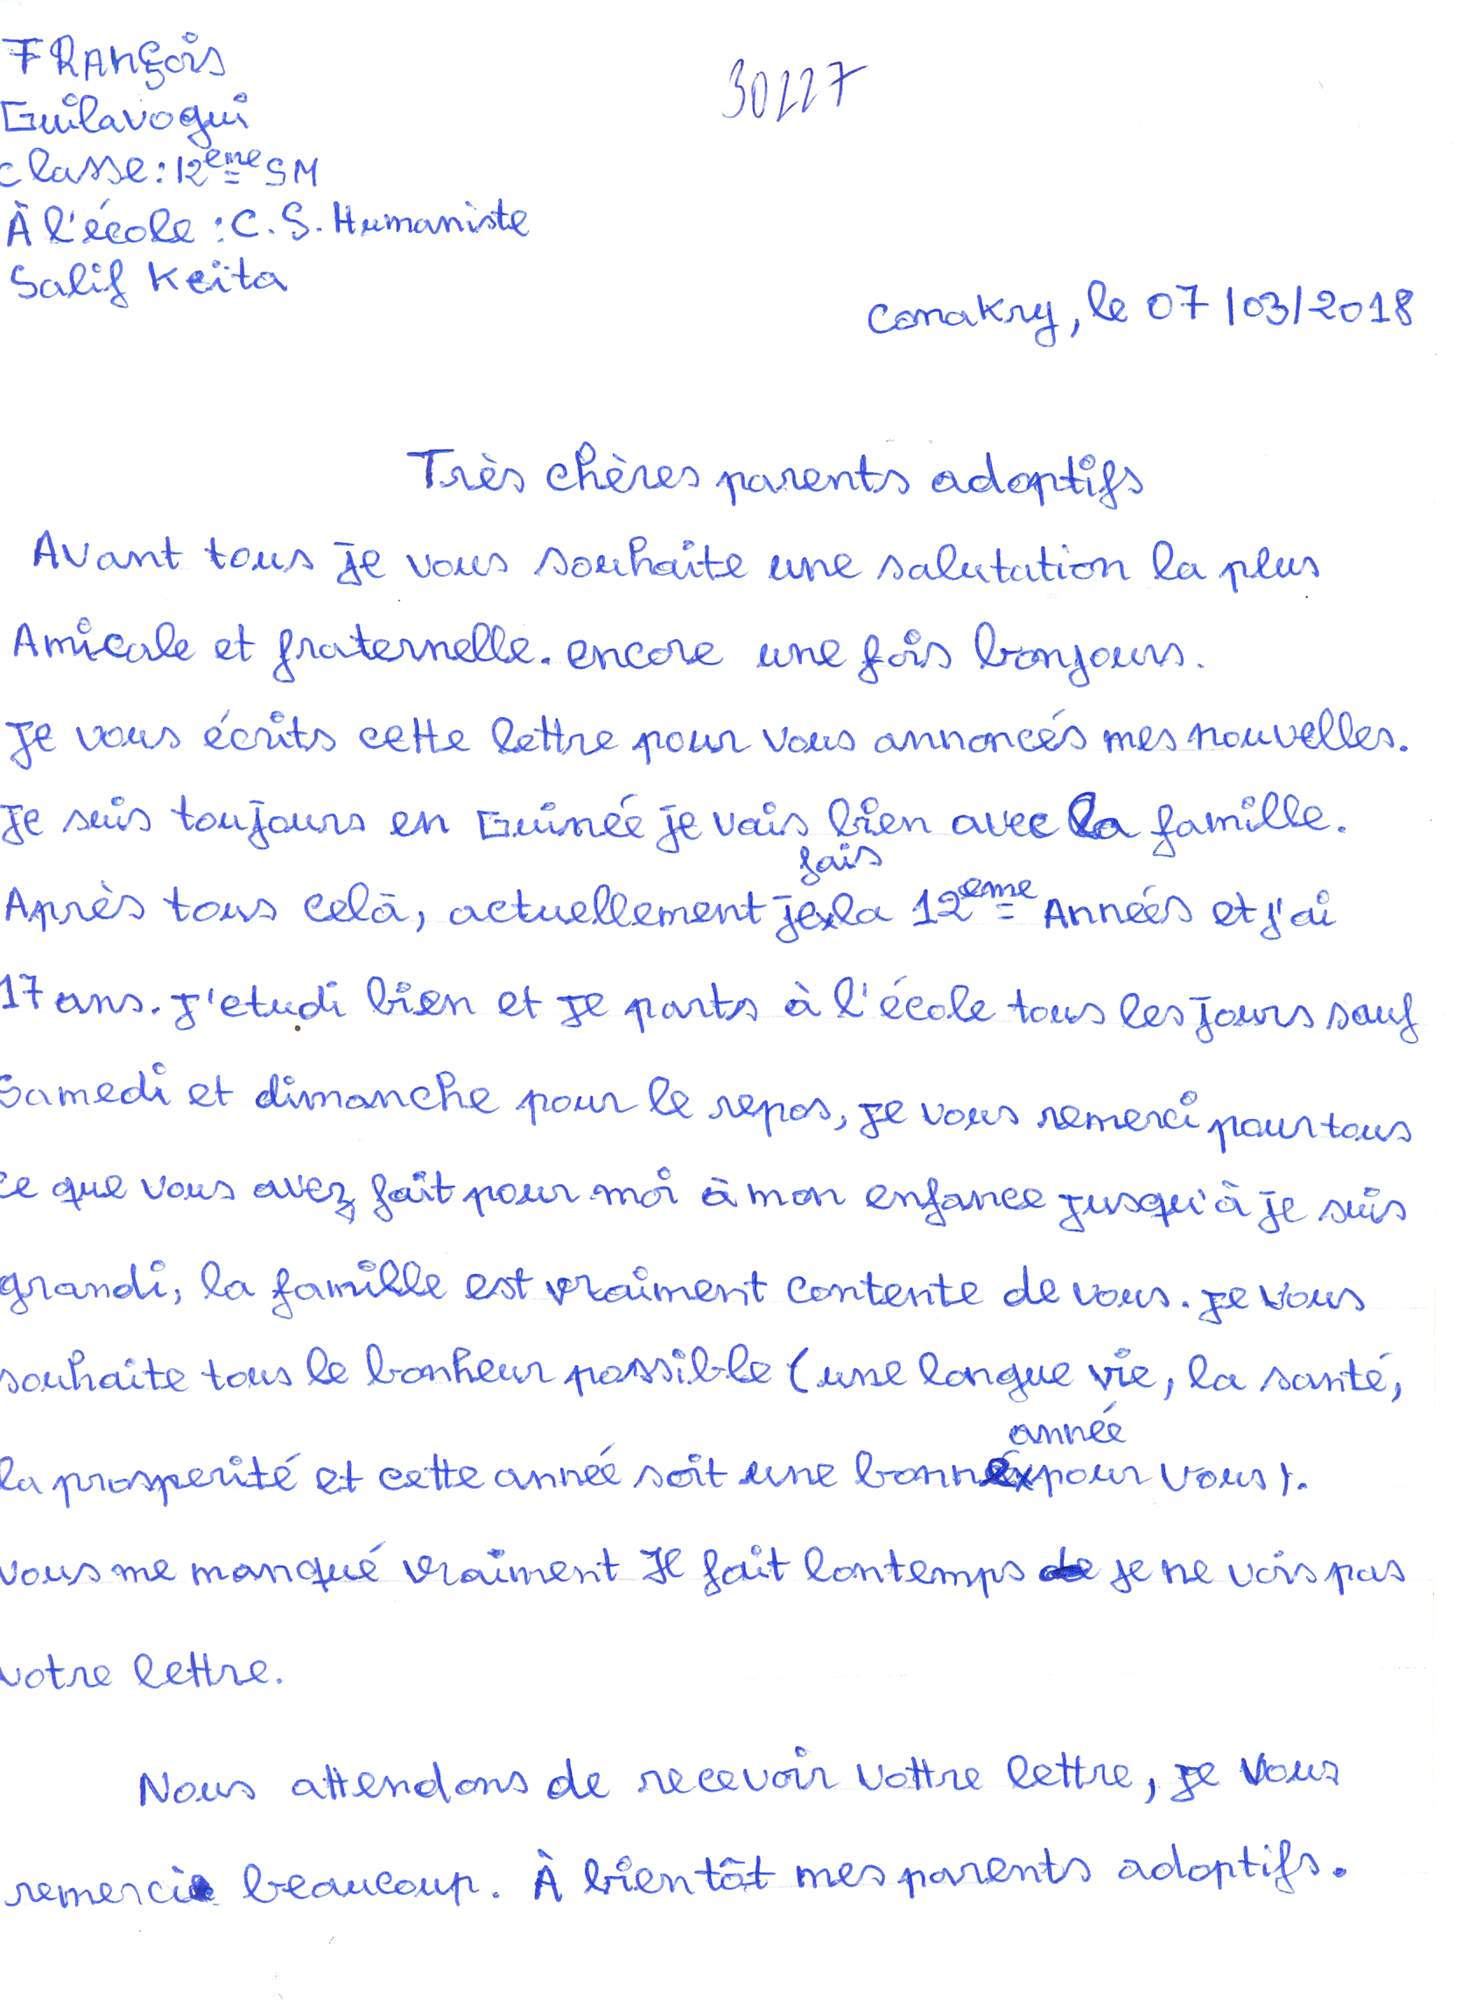 FRANçois
30227
Guilavogui
classe : 12ème SM
À l'école : C. S. Humaniste
Salif Keïta
Conakry, le 07/03/2018
Très chères parents adoptifs
Avant tous je vous souhaite une salutation la plus
Amicale et fraternelle. encore une fois bonjours.
Je vous écrits cette lettre pour vous annoncés mes nouvelles.
Je suis toujours en Guinée je vais bien avec la famille.
Après tous celà, actuellement je fais la 12ème Années et j'ai
17 ans. J'etudi bien et je parts à l'école tous les jours sauf
Samedi et dimanche pour le repos, je vous remerci pour tous
ce que vous avez fait pour moi à mon enfance jusqu'à je suis
grandi, la famille est vraiment contente de vous. je vous
souhaite tous le bonheur possible (une longue vie, la santé,
la prosperité et cette année soit une bonne année pour vous).
vous me manqué vraiment Il fait lontemps je ne vois pas
votre lettre.
Nous attendons de recevoir vottre lettre, je vous
remercie beaucoup. À bientôt mes parents adoptifs.